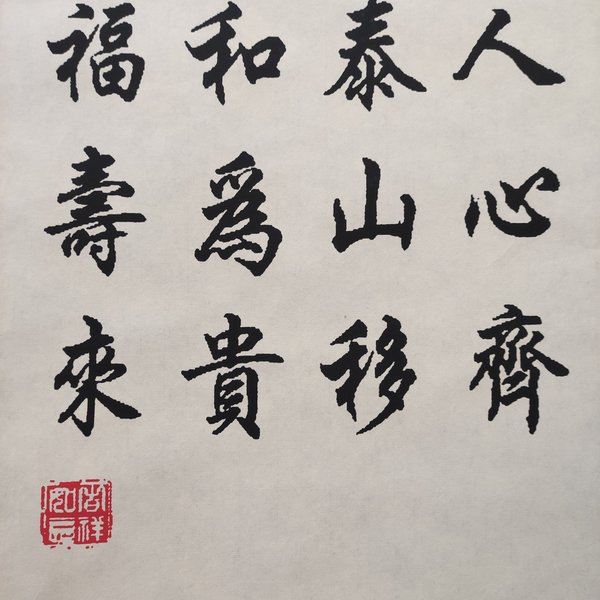 人心齊
泰山移
和為貴
福壽來